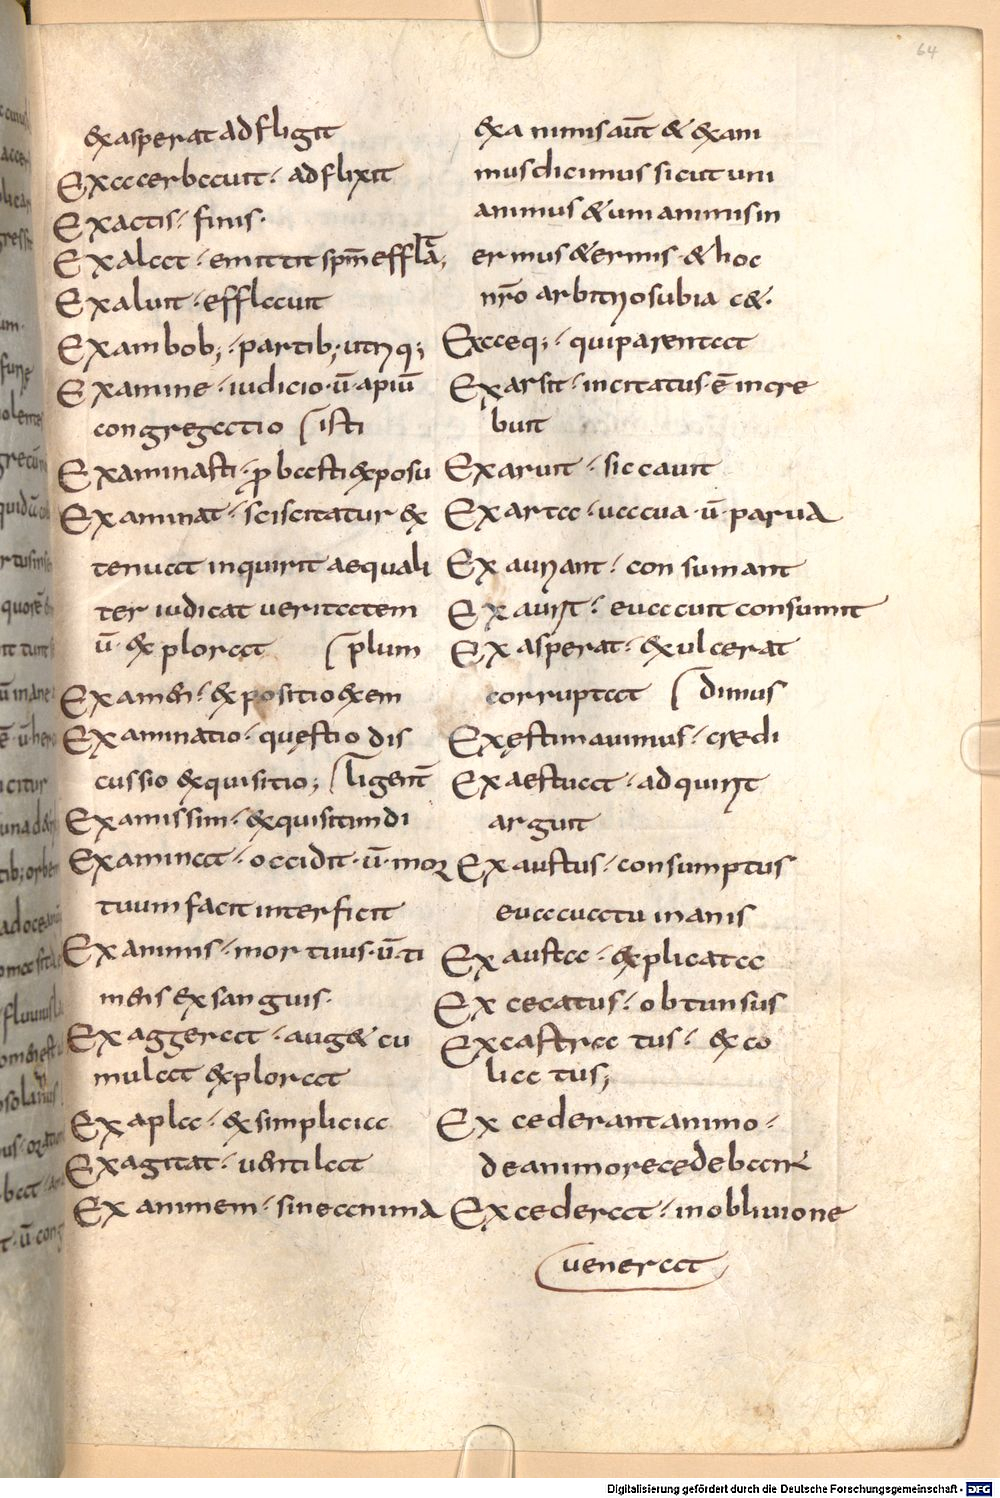 64
&asperat adfligit
Exacerbauit· adflixit
Exactis· finis·
Exalat· emittit spm̄ efflat̄,
Exaluit· efflauit
Exambob; · partib; utriq;
Examine· iudicio· ū· apiū
congregatio
Examinasti· ꝓbasti &posu
isti
Examinat· sciscitatur &
tenuat inquirit aequali
ter iudicat ueritatem
ū· &plorat
Examen· &positio &em
plum
Examinatio· quęstio dis
cussio &quisitio;
Examissim· &quisitim di
ligent̄
Examinat· occidit· ū· mor
tuum facit interficit
Exanimis· mortuus· ū· ti
mens exsanguis·
Exaggerat· auget cu
mulat &plorat
Exapla· &simplicia
Exagitat· uentilat
Exanimem· sine anima
&animis aut̄ & &ani
mus dicimus sicut uni
animus & unanimis in
ermus & ermis· & hoc
nr̄o arbitrio subiac&·
Exaeq; · qui parentat
Exarsit· incitatus· ē· incre
buit
Exaruit· siccauit
Exarta· uacua· ū· parua
Exauriant· consumant
Exaurit· euacuit consumit
Exasperat· &ulcerat
corruptat
Exęstimauimus· credi
dimus
Exaestuat· adquirit
arguit
Exaustus· consumptus
euacuatu inanis
Exausta· &plicata
Excecatus· obtunsus
Excastratus· &co
liatus;
Excederant animo·
de animo recedebant
Excederat· in obliuione
uenerat
Digitalisierung gefördert durch die Deutsche Forschungsgemeinschaft - DFG